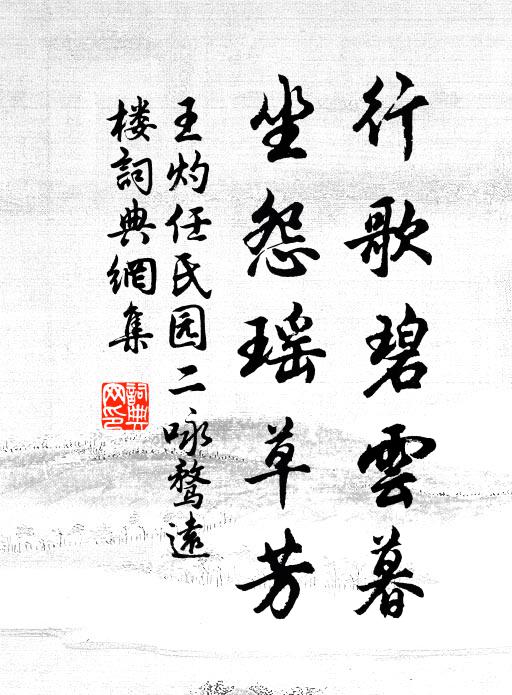 行歌碧雲暮
坐怨瑶草芳
王灼任民园二咏骛遠
楼詞典網集
詞典
网印